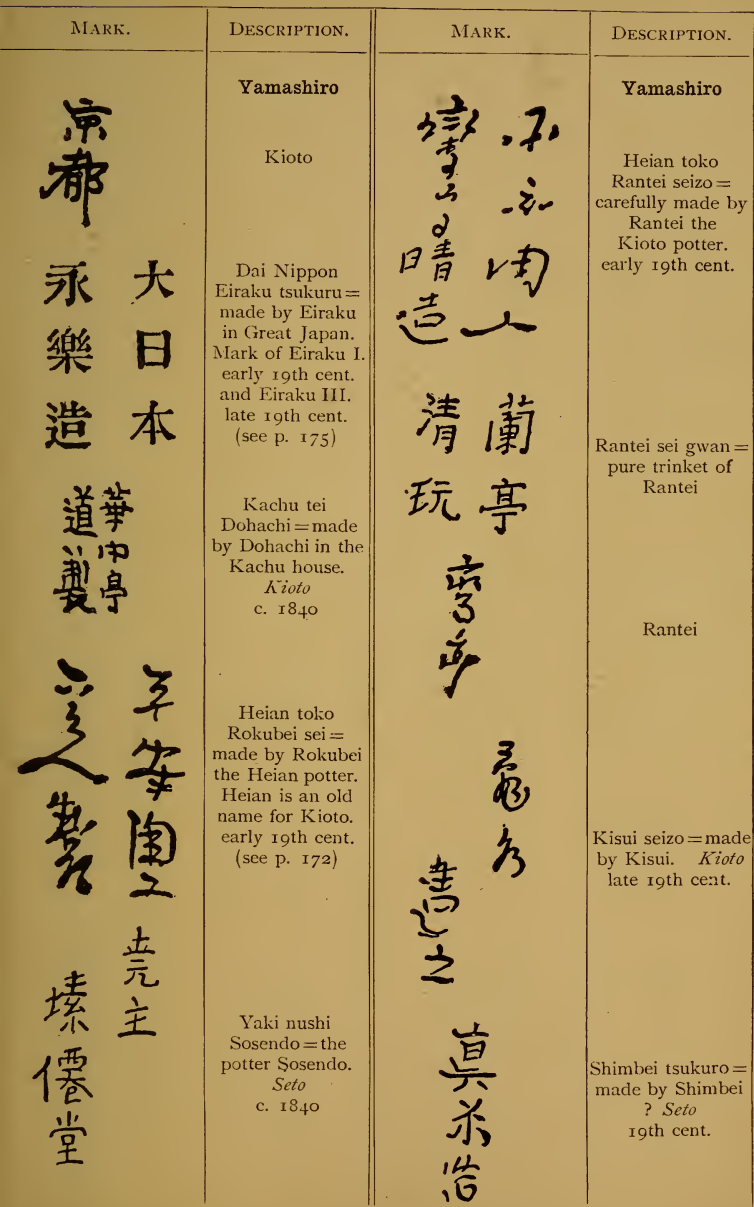 MARK.
DESCRIPTION.
Yamashiro
京都
Kioto
大日本
永樂造
Dai Nippon
Eiraku tsukuru=
made by Eiraku
in Great Japan.
Mark of Eiraku I.
early 19th cent.
and Eiraku III.
late 19th cent.
(see p. 175)
華中亭
道八製
Kachu tei
Dohachi=made
by Dohachi in the
Kachu house.
Kioto
c. 1840
平安陶工
六兵衛製
Heian toko
Rokubei sei=
made by Rokubei
the Heian potter.
Heian is an old
name for Kioto.
early 19th cent.
(see p. 172)
主
僊堂
Yaki nushi
Sosendo=the
potter Sosendo.
Seto
c. 1840
MARK.
DESCRIPTION.
Yamashiro
造
Heian toko
Rantei seizo=
carefully made by
Rantei the
Kioto potter.
early 19th cent.
蘭亭
清玩
Rantei sei gwan=
pure trinket of
Rantei
Rantei
Kisui seizo=made
by Kisui. Kioto
late 19th cent.
Shimbei tsukuro=
made by Shimbei
? Seto
19th cent.